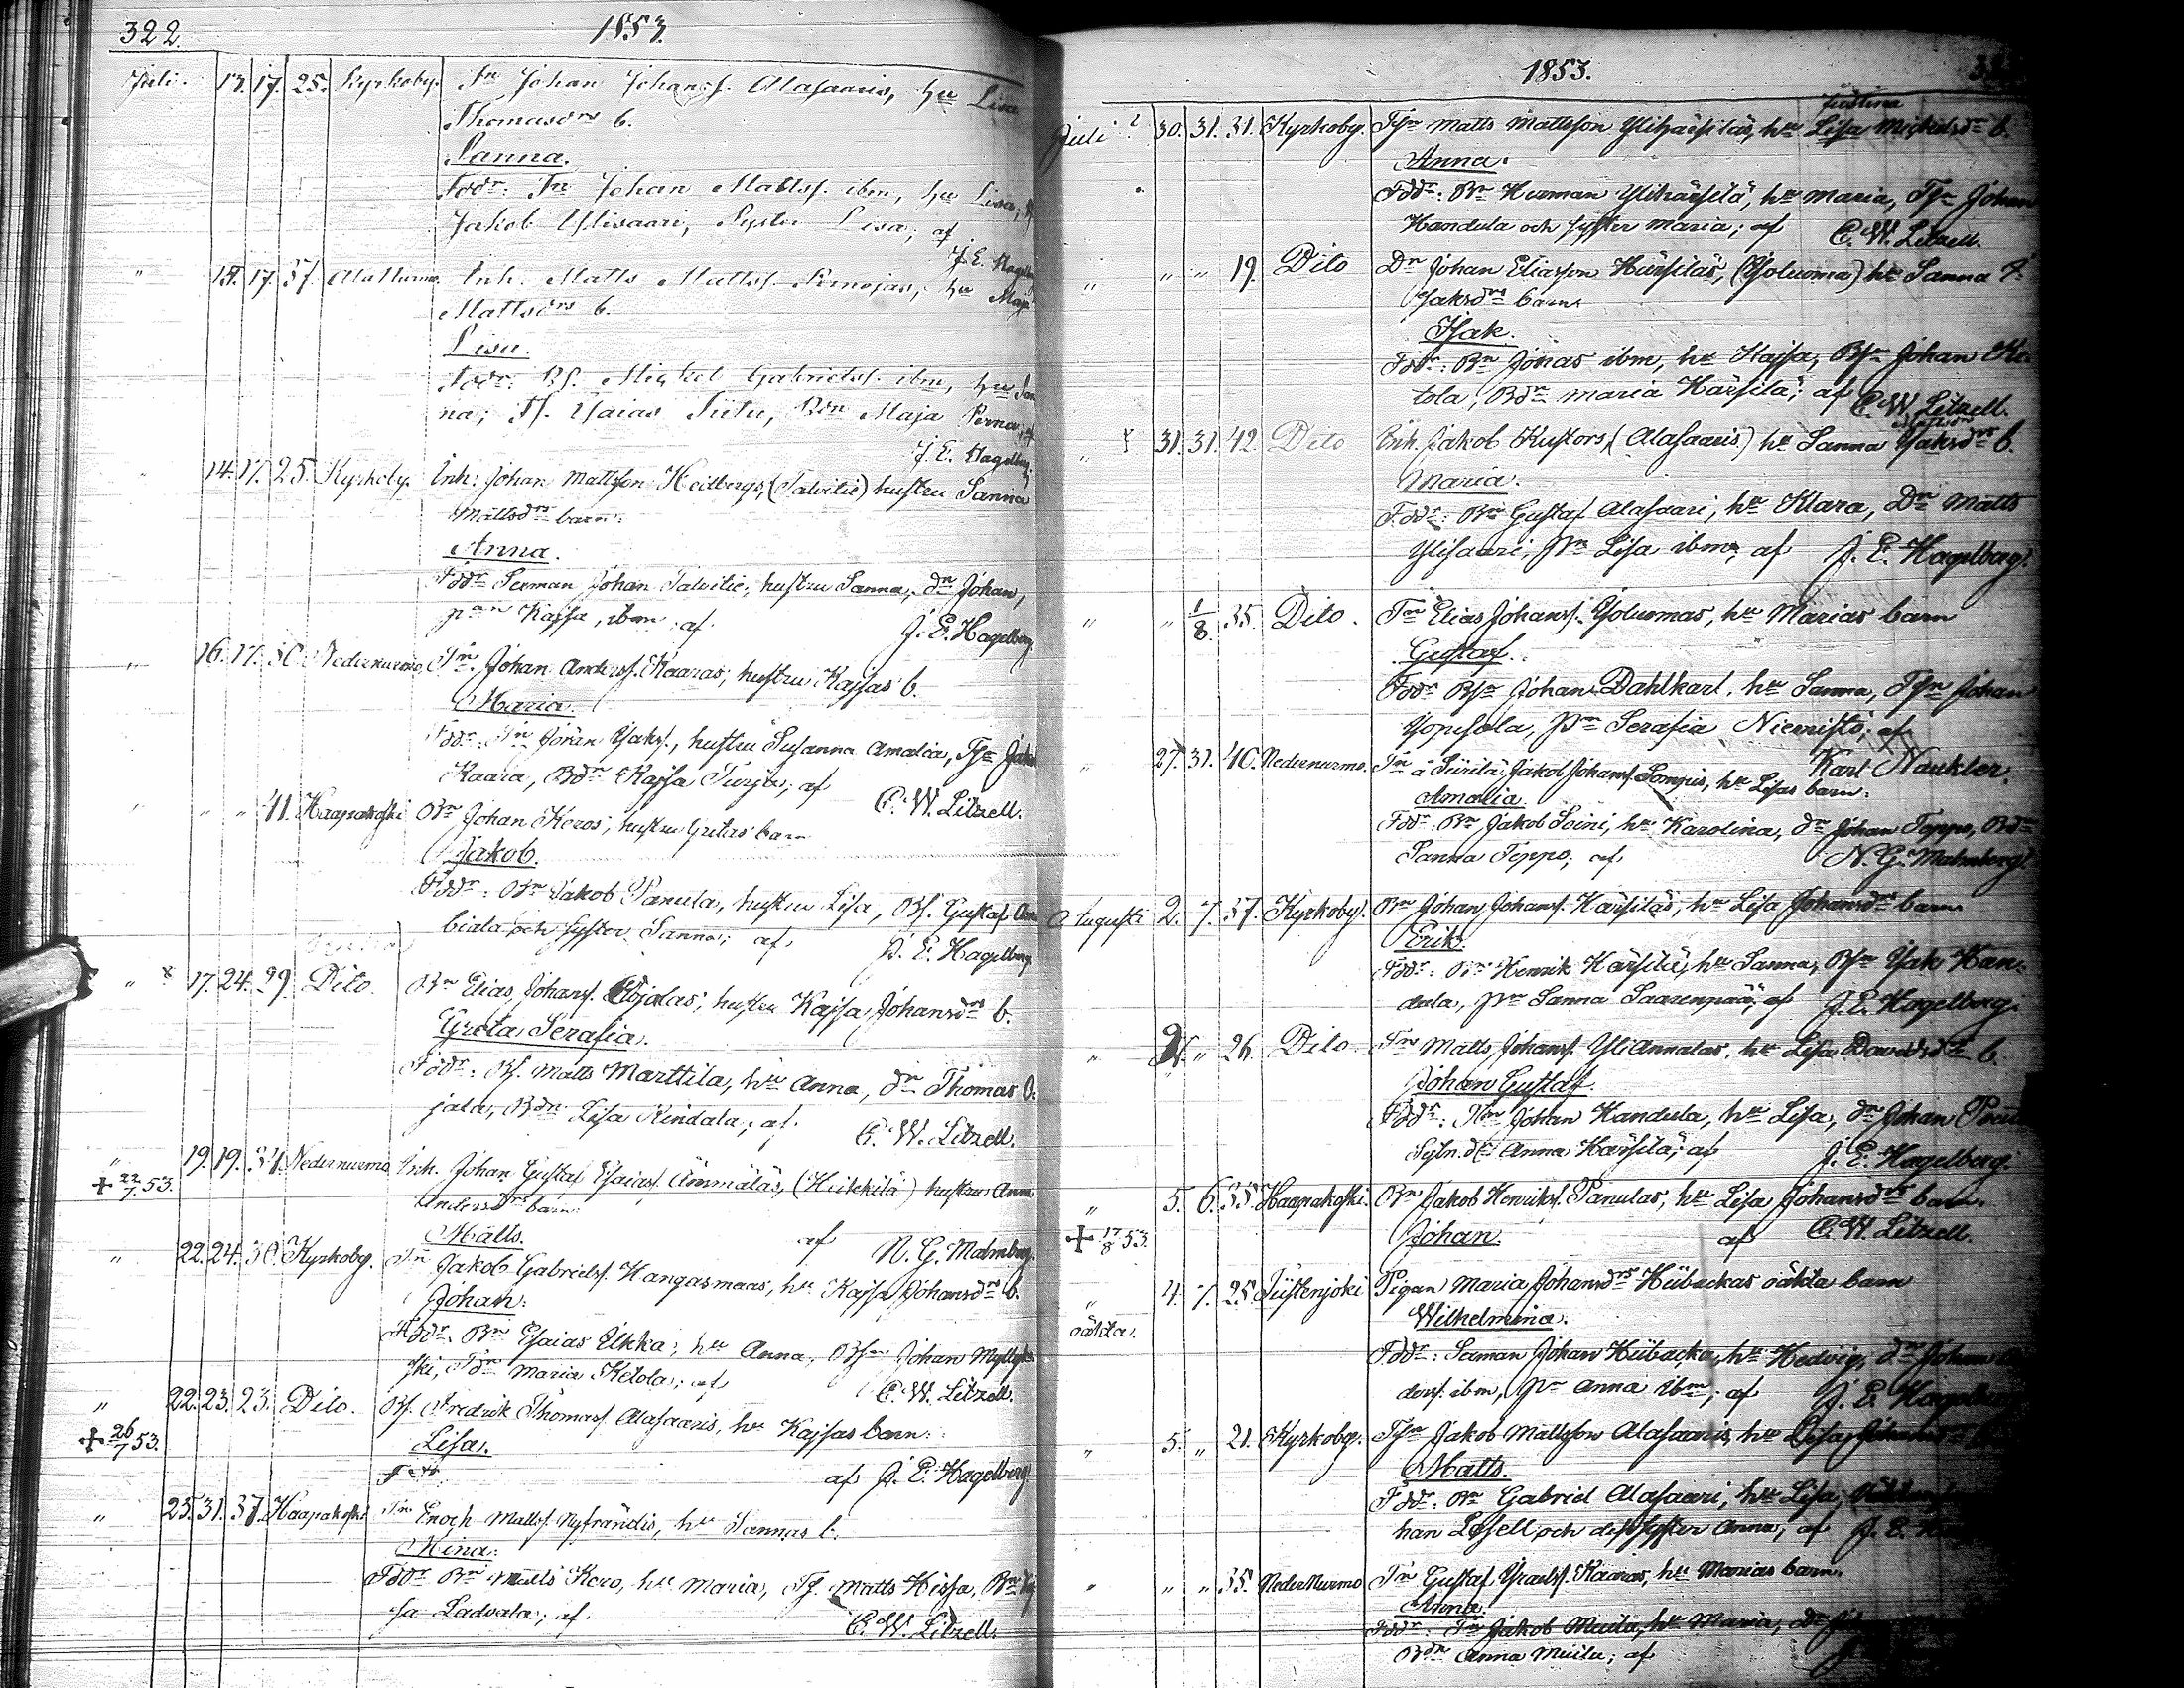 322.
1853.
Juli. 13. 17. 25. Kyrkoby. Tn Johan Johansf. Alasaaris, hu Lisa
Thomasdrs b.
Sanna.
Fddr: Tn Johan Mattsf. ibm, hu Lisa,
Jakob Ylisaari, Syster Lisa; af
J. E. Hagelberg
" 14. 17. 37. Alanurmo. Inh. Matts Mattsf. hu Maja
Mattsdrs b.
Lisa.
Fddr: Bs. Mickel Gabrielsf. ibm, hu San
na; Ts. Esaias Tiitu, Bdn Maja Perna; af
J. E. Hagelberg
" 14. 17. 25. Kyrkoby. Inh: Johan Mattsson Hedbergs, (Talvitie) hustru Sanna
Mattsdrs barn:
Anna.
Fddr Sexman Johan Talvitie, hustru Sanna, dn Johan,
pan Kajsa, ibm; af
J. E. Hagelberg
" 16. 17. 30. Nedernurmo. Tn. Johan Andersf. Kaaras, hustru Kajsas b.
Maria.
Fddr: Tn Johan Isaksf., hustru Susanna Amalia, Tsn Jakob
Kaara, Bdr Kajsa Turja; af
C. W. Litzell.
" " " 41. Haapakoski Bn Johan Keros, hustru Gretas barn
Jakob.
Fddr: Bn Jakob Panula, hustru Lisa, Bs. Gustaf
biala och syster Sanna; af
J. E. Hagelberg
" x 17. 24. 29. Dito. Bn Elias Johansf. Ojalas, hustru Kajsa Johansdrs b.
Greta Serafia.
Fddr: Bs. Matts Marttila, hu Anna, dn Thomas O.
jala, Bdn Lisa Rindala; af
C. W. Litzell.
" 19. 19. 34. Nedernurmo Inh. Johan Gustaf Esaiasf. Ämmäläs, (Heikkilä) hustru Anna
+ 22/7 53. Andersdrs barn
Matts. af N. G. Malmberg.
" 22. 24. 30. Kyrkoby. Tn Jakob Gabrielsf. Kangasmaas, hu Kajsa Johansdrs b.
Johan:
Fddr: Bn Esaias Ukka, hu Anna, Bsn Johan Myllyko
ski, Tdr Maria Ketola; af
C. W. Litzell.
" 22. 23. 23. Dito. Bs. Fredrik Thomasf. Alasaaris, hu Kajsas barn:
+ 26/7 53. Lisa.
Fddr af J. E. Hagelberg
" 25. 31. 37. Haapakoski Tn Enoch Mattsf. Nyfrändis, hu Sannas b.
Mina:
Fddr Bn Matts Kero, hu Maria, Ts. Matts Hissa, Bn
sa Ladvala; af.
C. W. Litzell.
1853.
Justina
Juli 30. 31. 31. Kyrkoby. Tsn Matts Mattsson Ylihärsiläs, hu Lisa Mickelsdr b.
Anna.
Fddr: Bn Herman Ylihärsilä, hu Maria, Tsn Johan
Handula och syster Maria; af C. W. Litzell.
" " " 19. Dito Dn Johan Eliasson Härsiläs, (Yoluoma) hu Sanna
Isaksdrs barn
Isak.
Fddr: Bn Jonas ibm, hu Kajsa, Bsn Johan Ke
tola, Bdn Maria Härsilä; af C. W. Litzell.
Mattsdrs
" x 31. 31. 42. Dito Inh. Jakob Kustorsf. (Alasaaris) hu Sanna Isaksdrs b.
Maria.
Fddr: Bn Gustaf Alasaari, hu Klara, Dn Matts
Ylisaari, Pn Lisa ibm; af J. E. Hagelberg.
" " 1/8. 35. Dito. Tn Elias Johansf. Yoluomas, hu Marias barn
Gustaf.
Fddr Bsn Johan Dahlkarl, hu Sanna, Tsn Johan
Yopesola, Pn Serafia Niemistö; af
Karl Naukler.
" 27. 31. 40. Nedernurmo. Tn å Siirilä Jakob Johansf. Sompis, hu Lisas barn:
Amalia.
Fddr: Bn Jakob Soini, hu Karolina, dn Johan Teppo, Bdn
Sanna Teppo; af N. G. Malmberg.
Augusti 2. 7. 37. Kyrkoby. Bn Johan Johansf. Härsiläs, hu Lisa Johansdrs barn
Erik.
Fddr: Bn Henrik Härsilä, hu Sanna, Bsn Isak Han-
dala, Pn Sanna Saarenpää; af J. E. Hagelberg.
" " 26. Dito. Tn Matts Johansf. YliAnnalas, hu Lisa Davidsdrs b.
Johan Gustaf.
Fddr: Bn Johan Handula, hu Lisa, dn Johan
Sytn.dr Anna Härsilä; af J. E. Hagelberg.
" 5. 6. 33. Haapakoski. Bn Jakob Henriksf. Panulas, hu Lisa Johansdrs barn.
+ 17/8 53. Johan. af C. W. Litzell.
" 4. 7. 25. Tiistenjoki Pigan Maria Johansdrs Hiibackas oäkta barn
oäkta. Wilhelmina.
Fddr: Sexman Johan Hiibacka, hu Hedvig, dn Johan
dersf. ibm, pn Anna ibm; af J. E. Hagelberg
" 5. " 21. Kyrkoby. Tsn Jakob Mattsson Alasaaris, hu Lisa
Matts.
Fddr: Bn Gabriel Alasaari, hu Lisa,
han Lösell, och dess syster Anna; af J. E.
" " " 35. NederNurmo Tn Gustaf Israelsf. Kaaras, hu Marias barn.
Anna
Fddr: Tn Jakob Muila, hu Maria, dn
Bdn Anna Muila; af